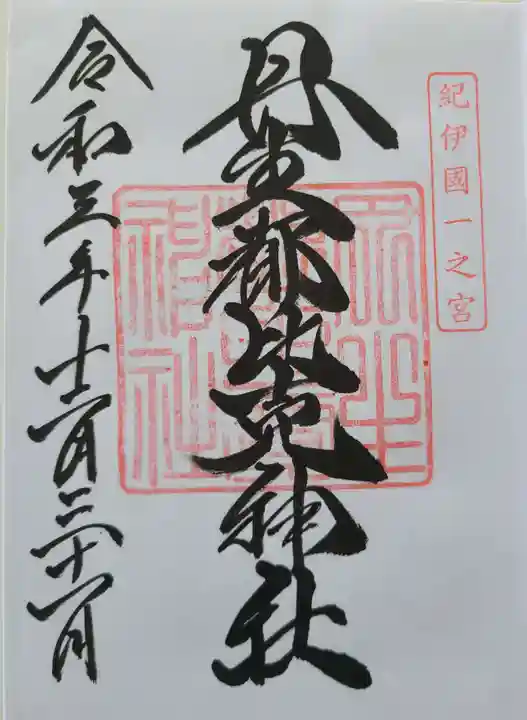 紀伊國一之宮
丹生都比売神社
令和三年十二月三十一日